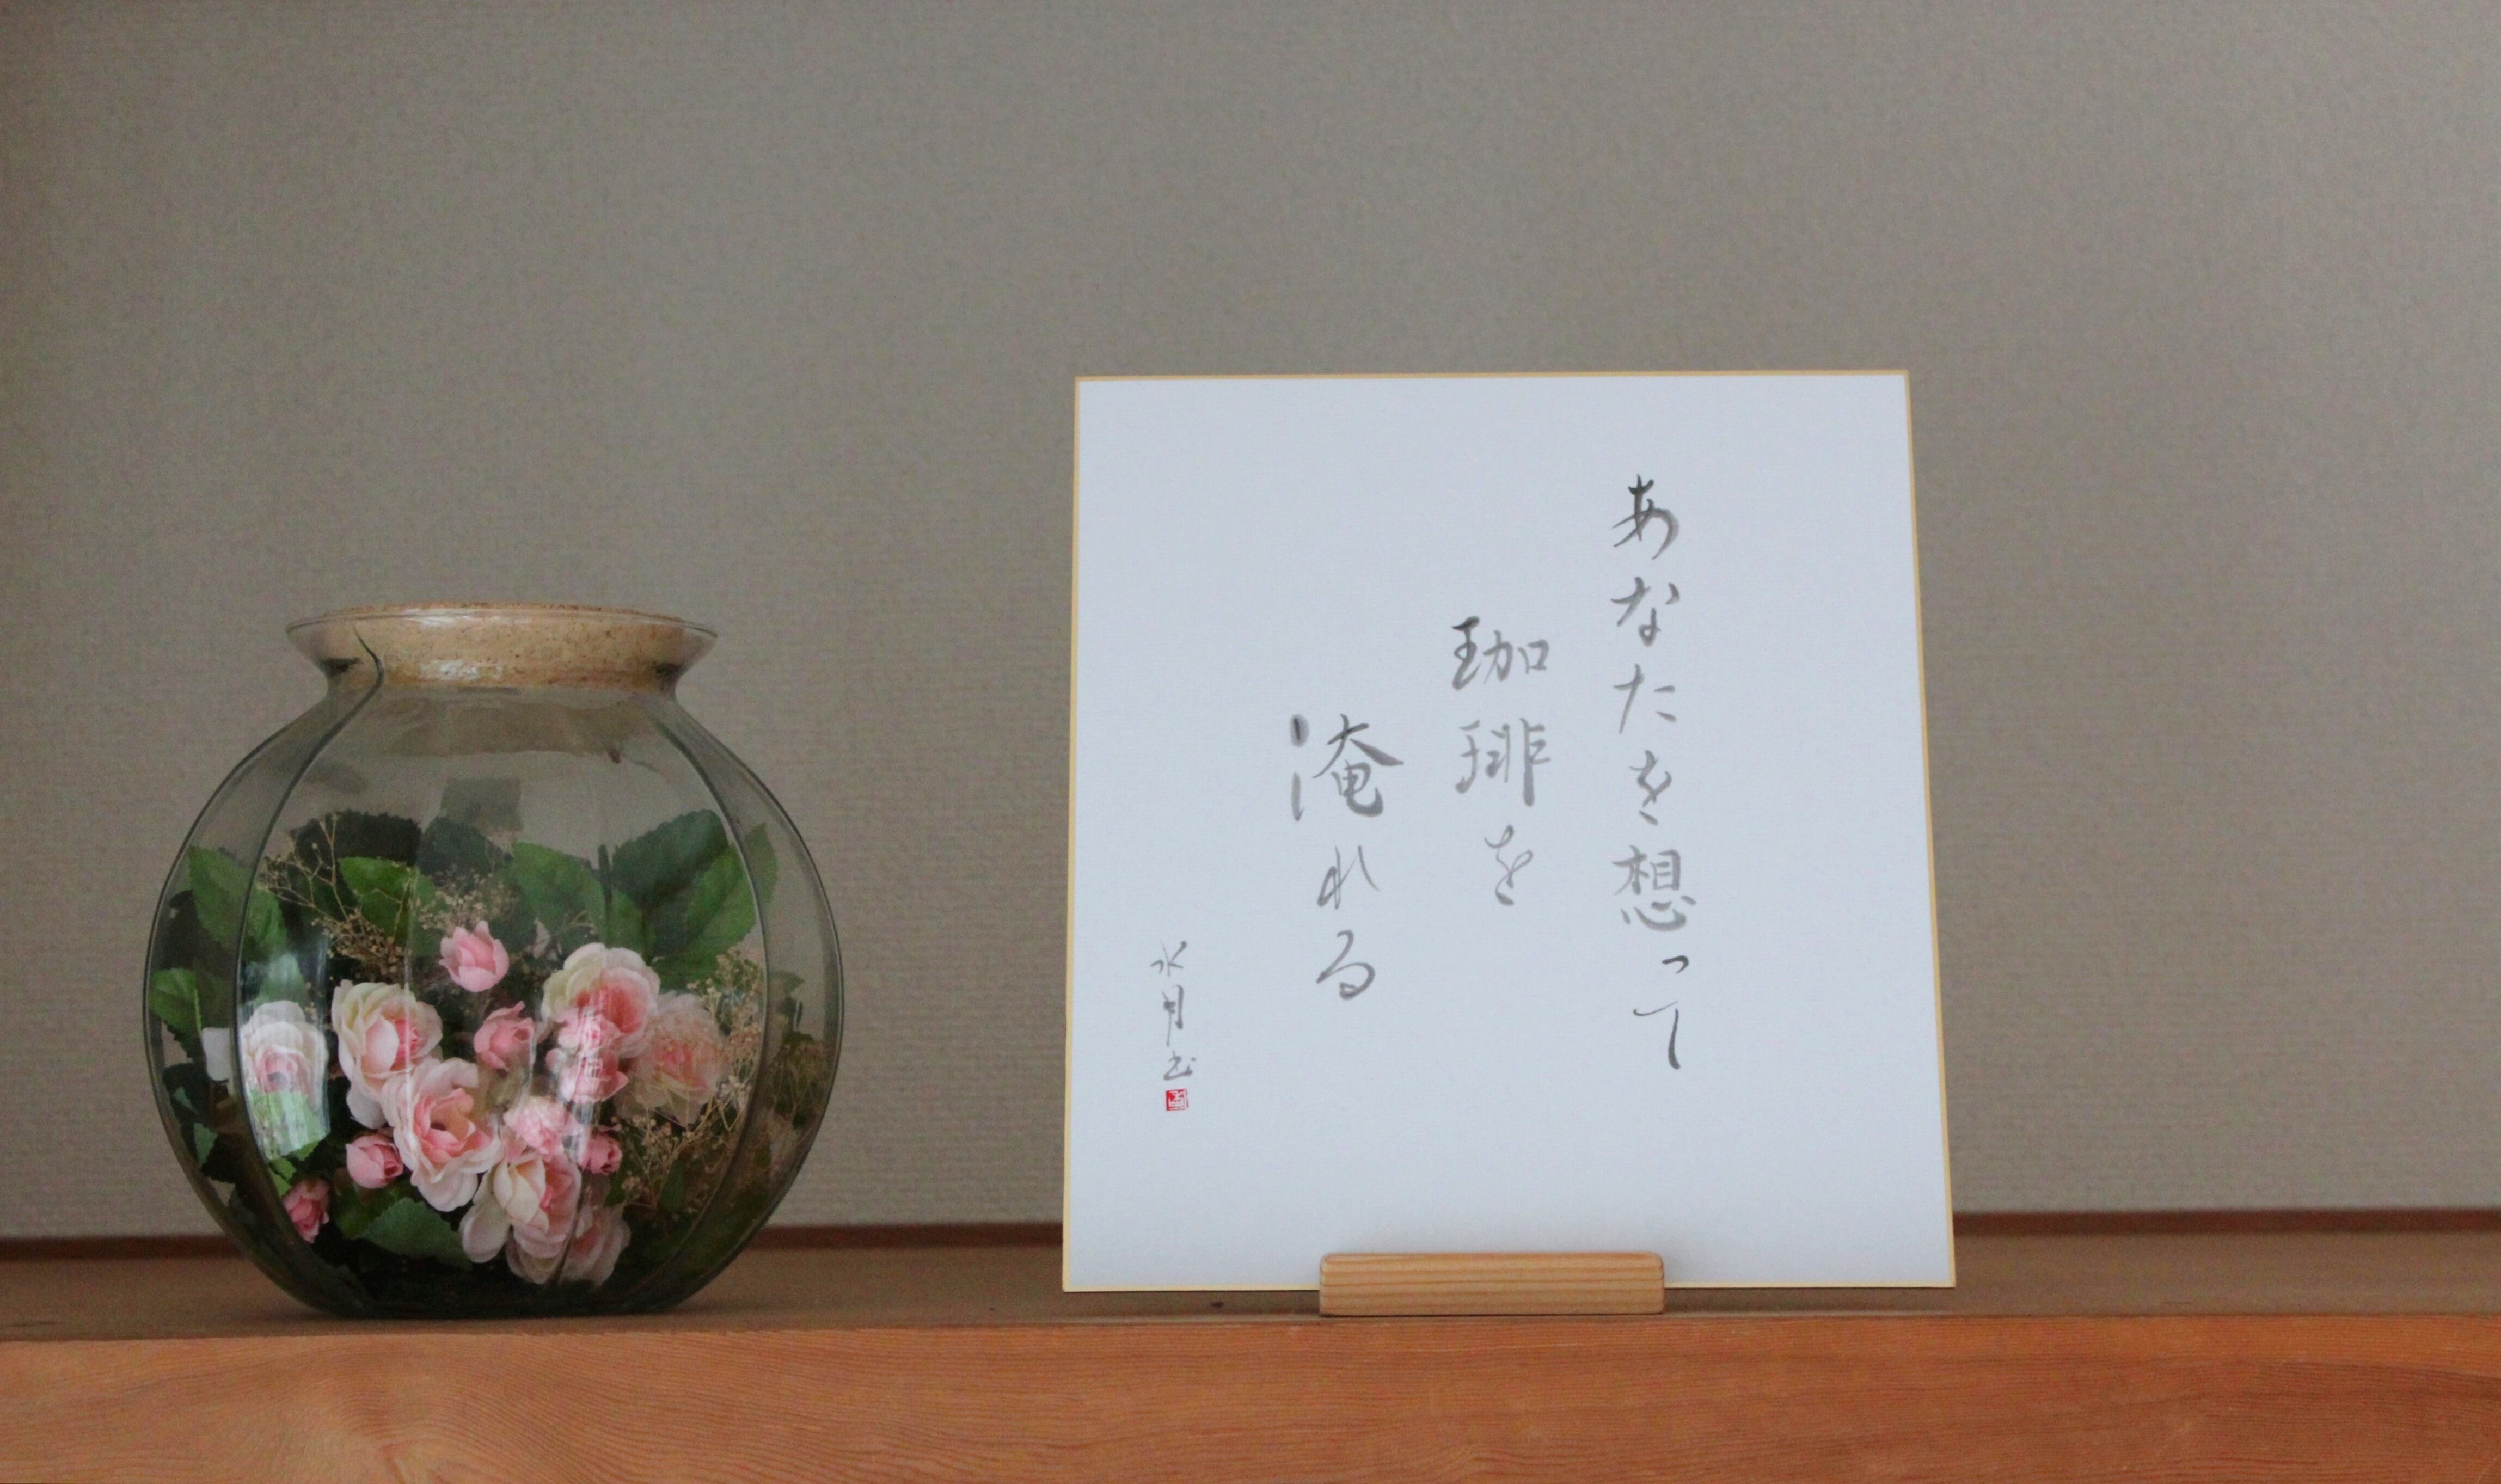 あなたを想って
珈琲を
淹れる
水月書